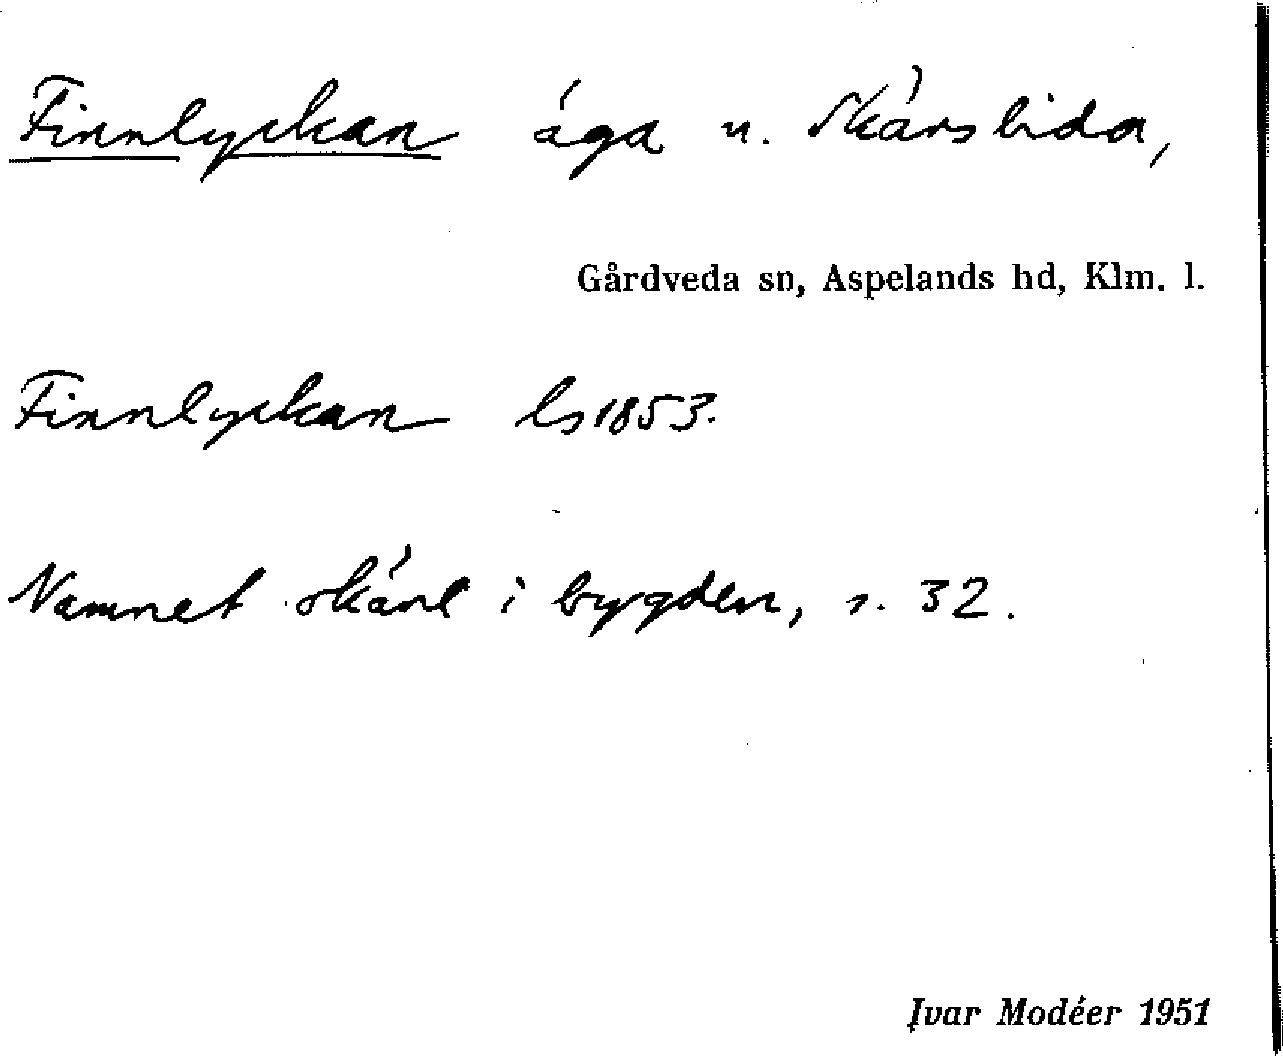 Finnlyckan äga u. Skärslida,
Gårdveda sn, Aspelands hd, Klm. l.
Finnlyckan ls 1853.
Namnet okänt i bygden, s. 32.
Ivar Modéer 1951